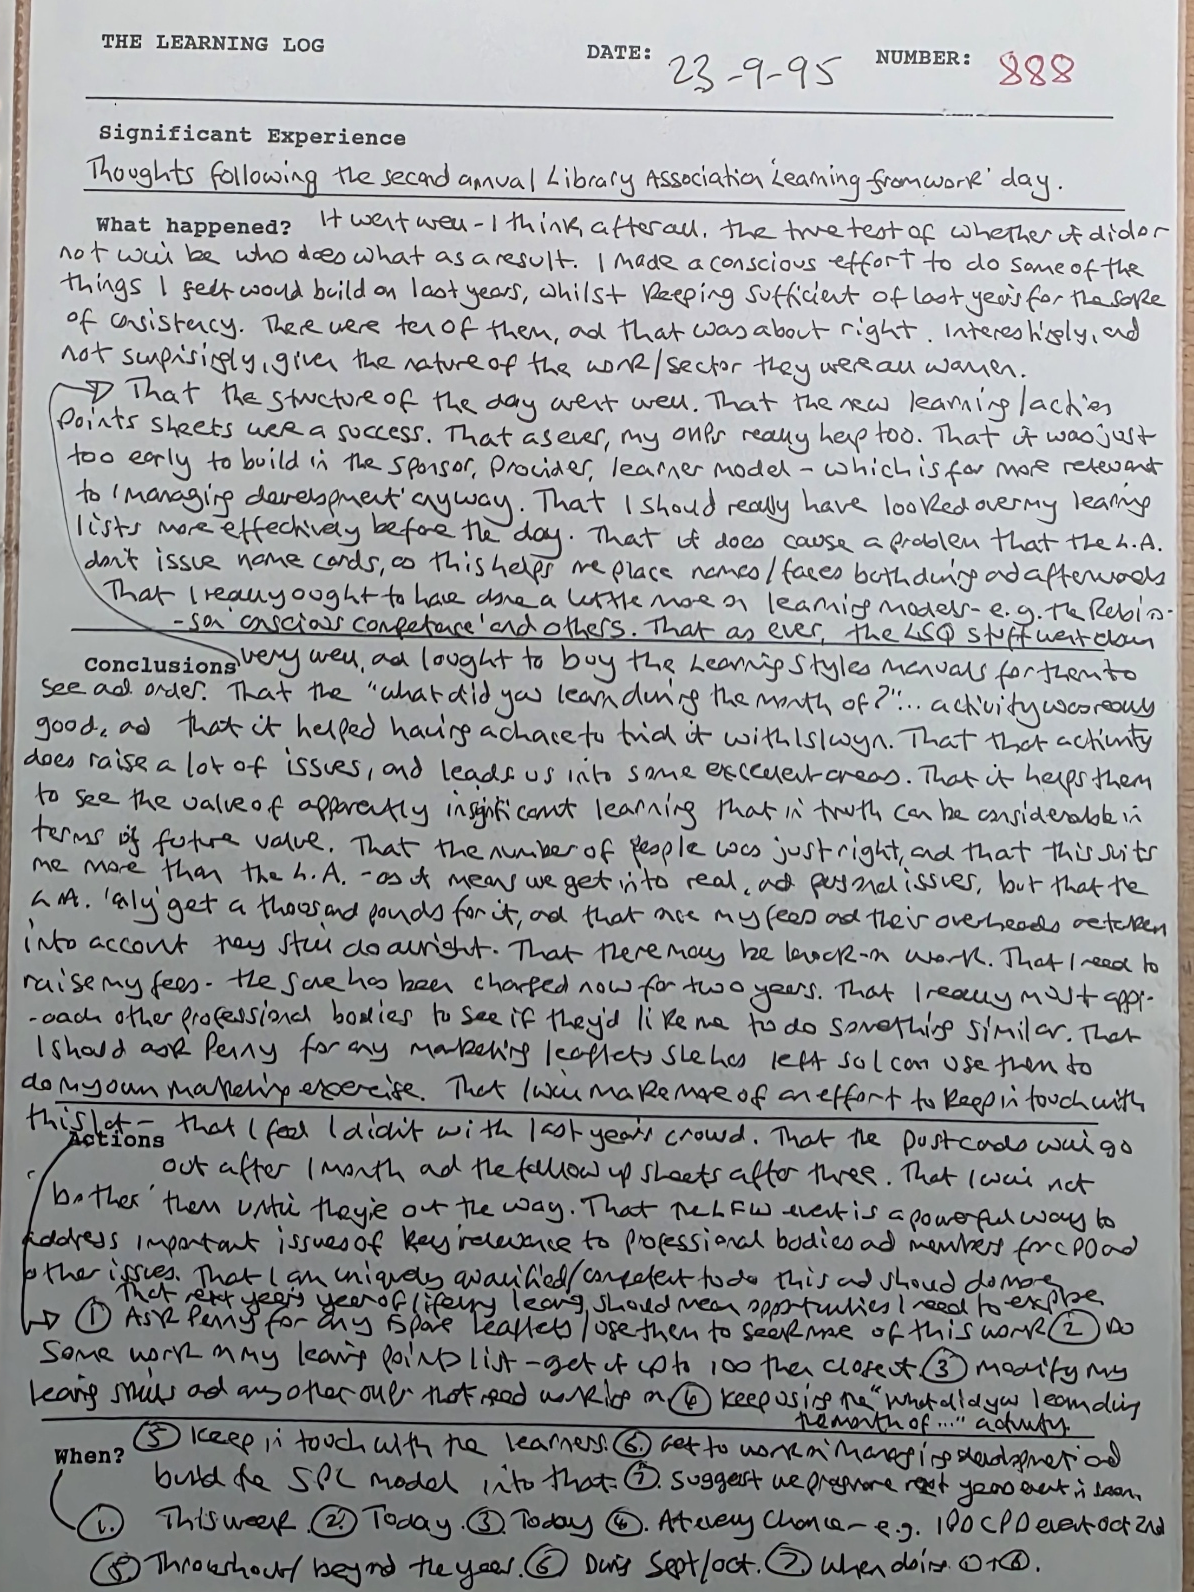 THE LEARNING LOG DATE: 23-9-95 NUMBER: 888
Significant Experience
Thoughts following the second annual Library Association 'Learning from work' day.
What happened? It went well - I think, after all, the true test of whether it did or
not will be who does what as a result. I made a conscious effort to do some of the
things I felt would build on last years, whilst keeping sufficient of last year's for the sake
of consistency. There were ten of them, and that was about right. Interestingly, and
not surprisingly, given the nature of the work/sector they were all women.
That the structure of the day went well. That the new learning/action
points sheets were a success. That as ever, my OHPs really help too. That it was just
too early to build in the sponsor, provider, learner model - which is far more relevant
to 'managing development' anyway. That I should really have looked over my learning
lists more effectively before the day. That it does cause a problem that the L.A.
don't issue name cards, as this helps me place names/faces both during and afterwards
That I really ought to have done a little more on learning models - e.g. the Robin-
-son 'conscious competence' and others. That as ever, the LSQ stuff went down
Conclusions very well, and I ought to buy the Learning Styles manuals for them to
see and order. That the "what did you learn during the month of?"... activity was really
good, and that it helped having a chance to trial it with Islwyn. That that activity
does raise a lot of issues, and leads us into some excellent areas. That it helps them
to see the value of apparently insignificant learning that in truth can be considerable in
terms of future value. That the number of people was just right, and that this suits
me more than the L.A. - as it means we get into real, and personal issues, but that the
L.A. 'only' get a thousand pounds for it, and that once my fees and their overheads are taken
into account they still do alright. That there may be knock-on work. That I need to
raise my fees - the same has been charged now for two years. That I really must appr-
-oach other professional bodies to see if they'd like me to do something similar. That
I should ask Penny for any marketing leaflets she has left so I can use them to
do my own marketing exercise. That I will make more of an effort to keep in touch with
this lot - that I feel I didn't with last year's crowd. That the postcards will go
Actions out after 1 month and the follow up sheets after three. That I will not
'bother' them until they're out the way. That the LFW event is a powerful way to
address important issues of key relevance to professional bodies and members for CPD and
other issues. That I am uniquely qualified/competent to do this and should do more
That next year's year of lifelong learning, should mean opportunities I need to explore
① Ask Penny for any spare leaflets/use them to seek more of this work ② Do
some work on my learning points list - get it up to 100 then close it. ③ Modify my
learning skills and any other OHPs that need working on ④ Keep using the "what did you learn during
the month of..." activity.
⑤ Keep in touch with the learners. ⑥. Get to work on managing development and
When? build the SPL model into that. ⑦. Suggest we programme next years event in soon.
①. This week. ②. Today. ③. Today ④. At every chance - e.g. IPD CPD event Oct 2nd
⑤ Throughout/beyond the year. ⑥ During Sept/Oct. ⑦ When doing